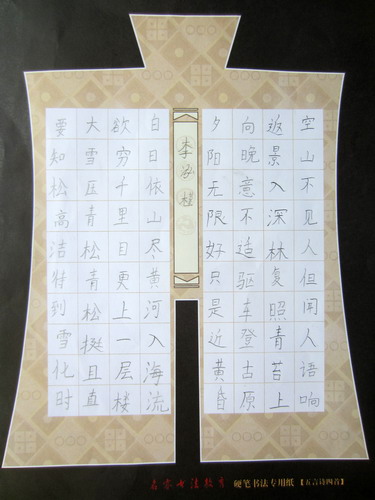 空山不见人但闻人语响
返景入深林复照青苔上
向晚意不适驱车登古原
夕阳无限好只是近黄昏
李
白日依山尽黄河入海流
欲穷千里目更上一层楼
大雪压青松青松挺且直
要知松高洁待到雪化时
名家书法教育 硬笔书法专用纸【五言诗四首】